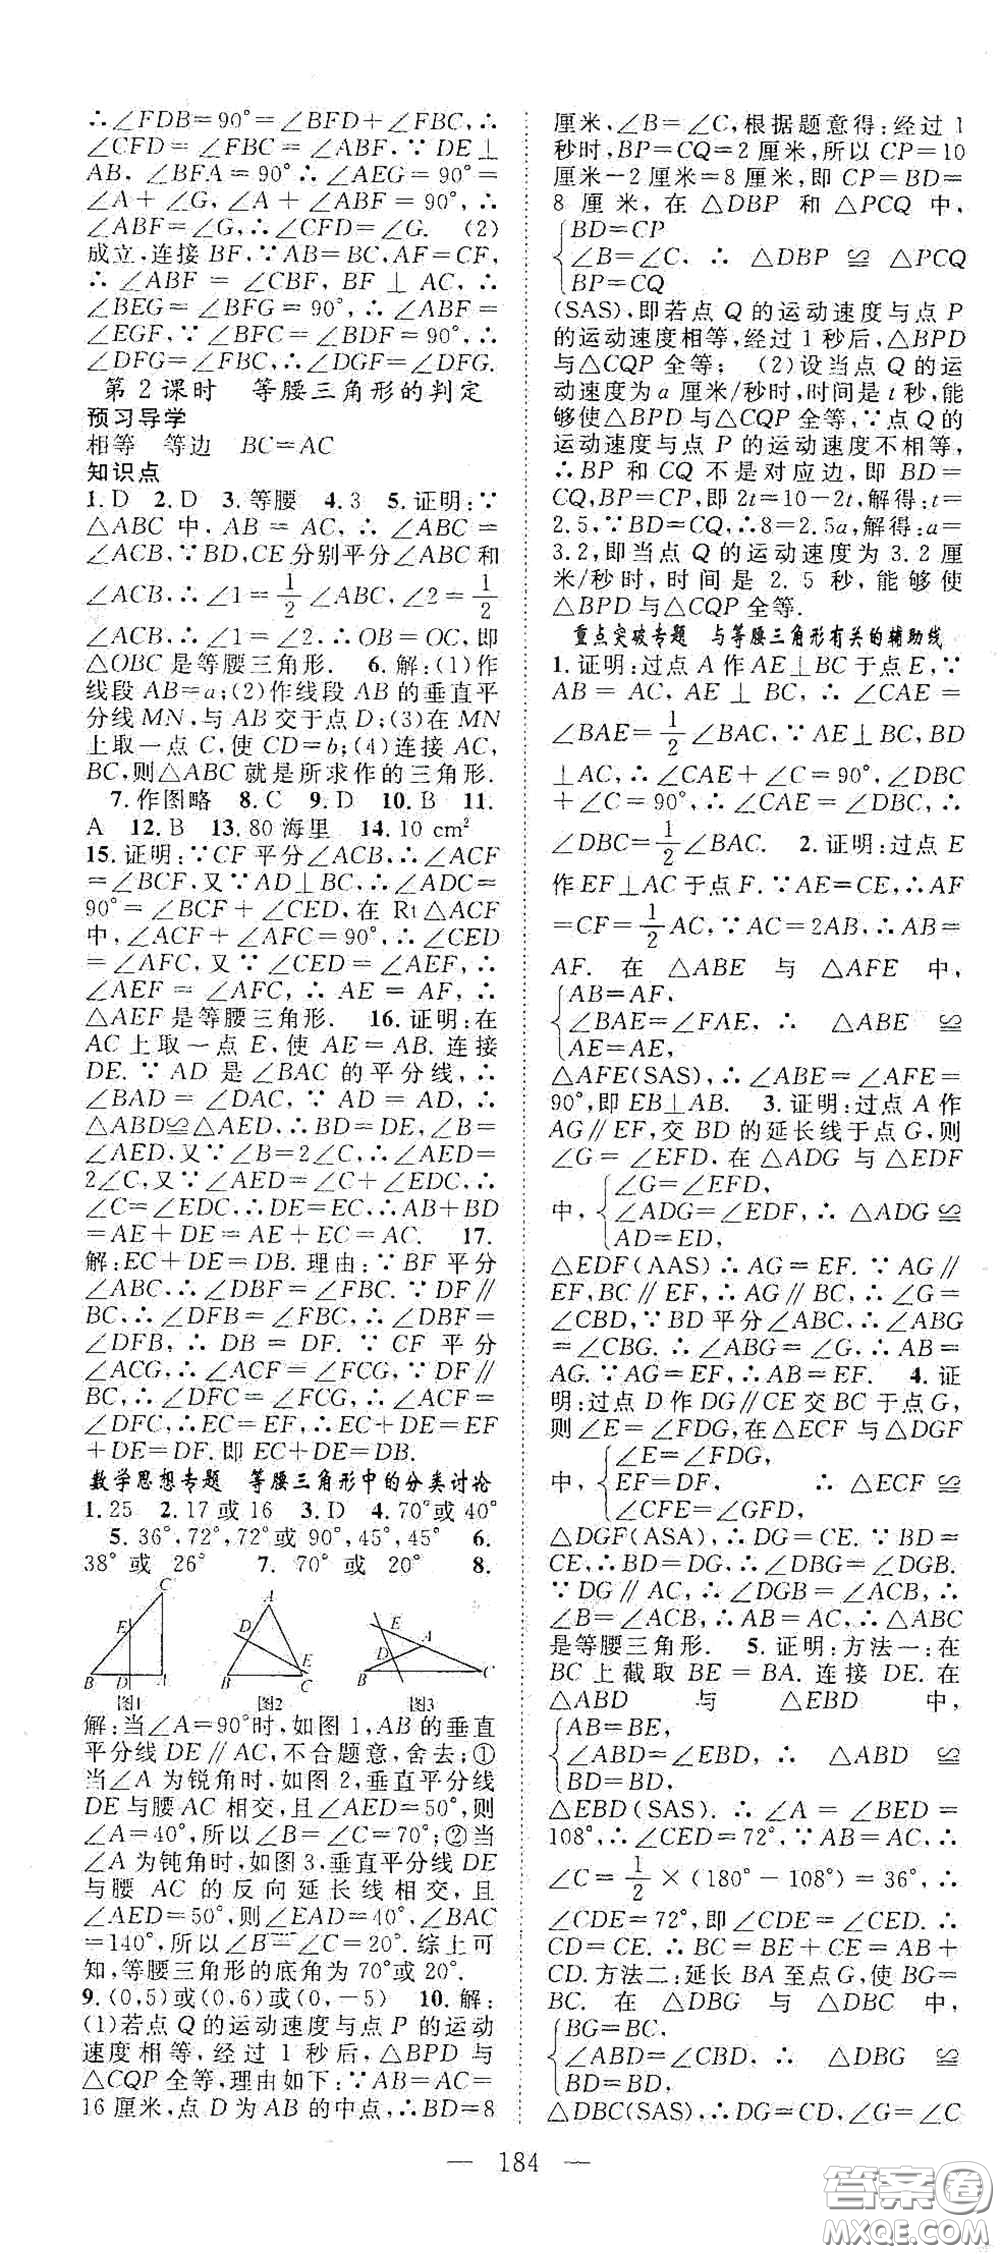 ∴∠FDB=90°=∠BFD+∠FBC,∴
∠CFD=∠FBC=∠ABF.∵DE⊥
AB,∠BFA=90°∴∠AEG=90°=
∠A+∠G,∠A+∠ABF=90°,∴
∠ABF=∠G,∴∠CFD=∠G. (2)
成立,连接 BF.∵AB=BC,AF=CF,
∴∠ABF=∠CBF,BF⊥AC,∴
∠BEG=∠BFG=90°,∴∠ABF=
∠EGF,∵∠BFC=∠BDF=90°,∴
∠DFG=∠FBC,∴∠DGF=∠DFG.
第2课时 等腰三角形的判定
预习导学
相等 等边 BC=AC
知识点
1.D 2.D 3.等腰 4.3 5.证明:∵
△ABC 中,AB=AC,∴∠ABC=
∠ACB,∵BD,CE分别平分∠ABC和
∠ACB,∴∠1=1/2∠ABC,∠2=1/2
∠ACB,∴∠1=∠2,∴OB=OC,即
△OBC是等腰三角形. 6.解:(1)作
线段AB=a;(2)作线段AB的垂直平
分线MN,与AB交于点D;(3)在MN
上取一点C,使CD=b;(4)连接AC,
BC,则△ABC就是所求作的三角形.
7.作图略 8.C 9.D 10.B 11.
A 12.B 13.80海里 14.10 cm²
15.证明:∵CF平分∠ACB,∴∠ACF
=∠BCF,又∵AD⊥BC,∴∠ADC=
90°=∠BCF+∠CED,在Rt△ACF
中,∠ACF+∠AFC=90°,∴∠CED
=∠AFC,又∵∠CED=∠AEF,∴
∠AEF=∠AFC,∴AE=AF,∴
△AEF是等腰三角形. 16.证明:在
AC上取一点E,使AE=AB.连接
DE.∵AD是∠BAC的平分线,∴
∠BAD=∠DAC,∵AD=AD,∴
△ABD≌△AED,∴BD=DE,∠B=
∠AED,又∵∠B=2∠C,∴∠AED=
2∠C,又∵∠AED=∠C+∠EDC,∴
∠C=∠EDC,∴DE=EC,∴AB+BD
=AE+DE=AE+EC=AC. 17.
解:EC+DE=DB.理由:∵BF平分
∠ABC,∴∠DBF=∠FBC.∵DF∥
BC,∴∠DFB=∠FBC,∴∠DBF=
∠DFB,∴DB=DF.∵CF平分
∠ACG,∴∠ACF=∠FCG,∵DF∥
BC,∴∠DFC=∠FCG,∴∠ACF=
∠DFC,∴EC=EF,∴EC+DE=EF
+DE=DF.即EC+DE=DB.
数学思想专题 等腰三角形中的分类讨论
1.25 2.17或16 3.D 4.70°或40°
5.36°,72°,72°或90°,45°,45° 6.
38°或26° 7.70°或20° 8.
C
E
B D A
图1
A
D E
B C
图2
E
A
D
B C
图3
解:当∠A=90°时,如图1,AB的垂直
平分线DE∥AC,不合题意,舍去;①
当∠A为锐角时,如图2,垂直平分线
DE与腰AC相交,且∠AED=50°,则
∠A=40°,所以∠B=∠C=70°;②当
∠A为钝角时,如图3,垂直平分线DE
与腰AC的反向延长线相交,且
∠AED=50°,则∠EAD=40°,∠BAC
=140°,所以∠B=∠C=20°.综上可
知,等腰三角形的底角为70°或20°.
9.(0,5)或(0,6)或(0,-5) 10.解:
(1)若点Q的运动速度与点P的运动
速度相等,经过1秒后,△BPD与
△CQP全等,理由如下:∵AB=AC=
16厘米,点D为AB的中点,∴BD=8
厘米,∠B=∠C,根据题意得:经过1
秒时,BP=CQ=2厘米,所以CP=10
厘米-2厘米=8厘米,即CP=BD=
8厘米,在△DBP和△PCQ中,
BD=CP
∠B=∠C,∴△DBP≌△PCQ
BP=CQ
(SAS),即若点Q的运动速度与点P
的运动速度相等,经过1秒后,△BPD
与△CQP全等; (2)设当点Q的运
动速度为a厘米/秒时,时间是t秒,能
够使△BPD与△CQP全等,∵点Q的
运动速度与点P的运动速度不相等,
∴BP和CQ不是对应边,即BD=
CQ,BP=CP,即2t=10-2t,解得:t=
2.5,∵BD=CQ,∴8=2.5a,解得:a=
3.2,即当点Q的运动速度为3.2厘
米/秒时,时间是2.5秒,能够使
△BPD与△CQP全等.
重点突破专题 与等腰三角形有关的辅助线
1.证明:过点A作AE⊥BC于点E,∵
AB=AC,AE⊥BC,∴∠CAE=
∠BAE=1/2∠BAC,∵AE⊥BC,BD
⊥AC,∴∠CAE+∠C=90°,∠DBC
+∠C=90°,∴∠CAE=∠DBC,∴
∠DBC=1/2∠BAC. 2.证明:过点E
作EF⊥AC于点F.∵AE=CE,∴AF
=CF=1/2AC,∵AC=2AB,∴AB=
AF.在△ABE与△AFE中,
AB=AF,
∠BAE=∠FAE,∴△ABE≌
AE=AE,
△AFE(SAS),∴∠ABE=∠AFE=
90°,即EB⊥AB. 3.证明:过点A作
AG∥EF,交BD的延长线于点G,则
∠G=∠EFD.在△ADG与△EDF
∠G=∠EFD,
中,∠ADG=∠EDF,∴△ADG≌
AD=ED,
△EDF(AAS)∴AG=EF.∵AG∥
EF,BC∥EF,∴AG∥BC,∴∠G=
∠CBD,∵BD平分∠ABC,∴∠ABG
=∠CBG.∴∠ABG=∠G.∴AB=
AG.∵AG=EF,∴AB=EF. 4.证
明:过点D作DG∥CE交BC于点G,
则∠E=∠FDG,在△ECF与△DGF
∠E=∠FDG,
中,EF=DF, ∴△ECF≌
∠CFE=∠GFD,
△DGF(ASA),∴DG=CE.∵BD=
CE,∴BD=DG,∴∠DBG=∠DGB.
∵DG∥AC,∴∠DGB=∠ACB,∴
∠B=∠ACB,∴AB=AC,∴△ABC
是等腰三角形. 5.证明:方法一:在
BC上截取BE=BA.连接DE.在
△ABD与△EBD中,
AB=BE,
∠ABD=∠EBD,∴△ABD≌
BD=BD,
△EBD(SAS).∴∠A=∠BED=
108°,∴∠CED=72°,∵AB=AC,∴
∠C=1/2×(180°-108°)=36°,∴
∠CDE=72°,即∠CDE=∠CED.∴
CD=CE.∴BC=BE+CE=AB+
CD.方法二:延长BA至点G,使BG=
BC.在△DBG与△DBC中,
BG=BC,
∠ABD=∠CBD,∴△DBG≌
BD=BD,
△DBC(SAS),∴DG=CD,∠G=∠C
— 184 —
答案圈
MXQE.COM